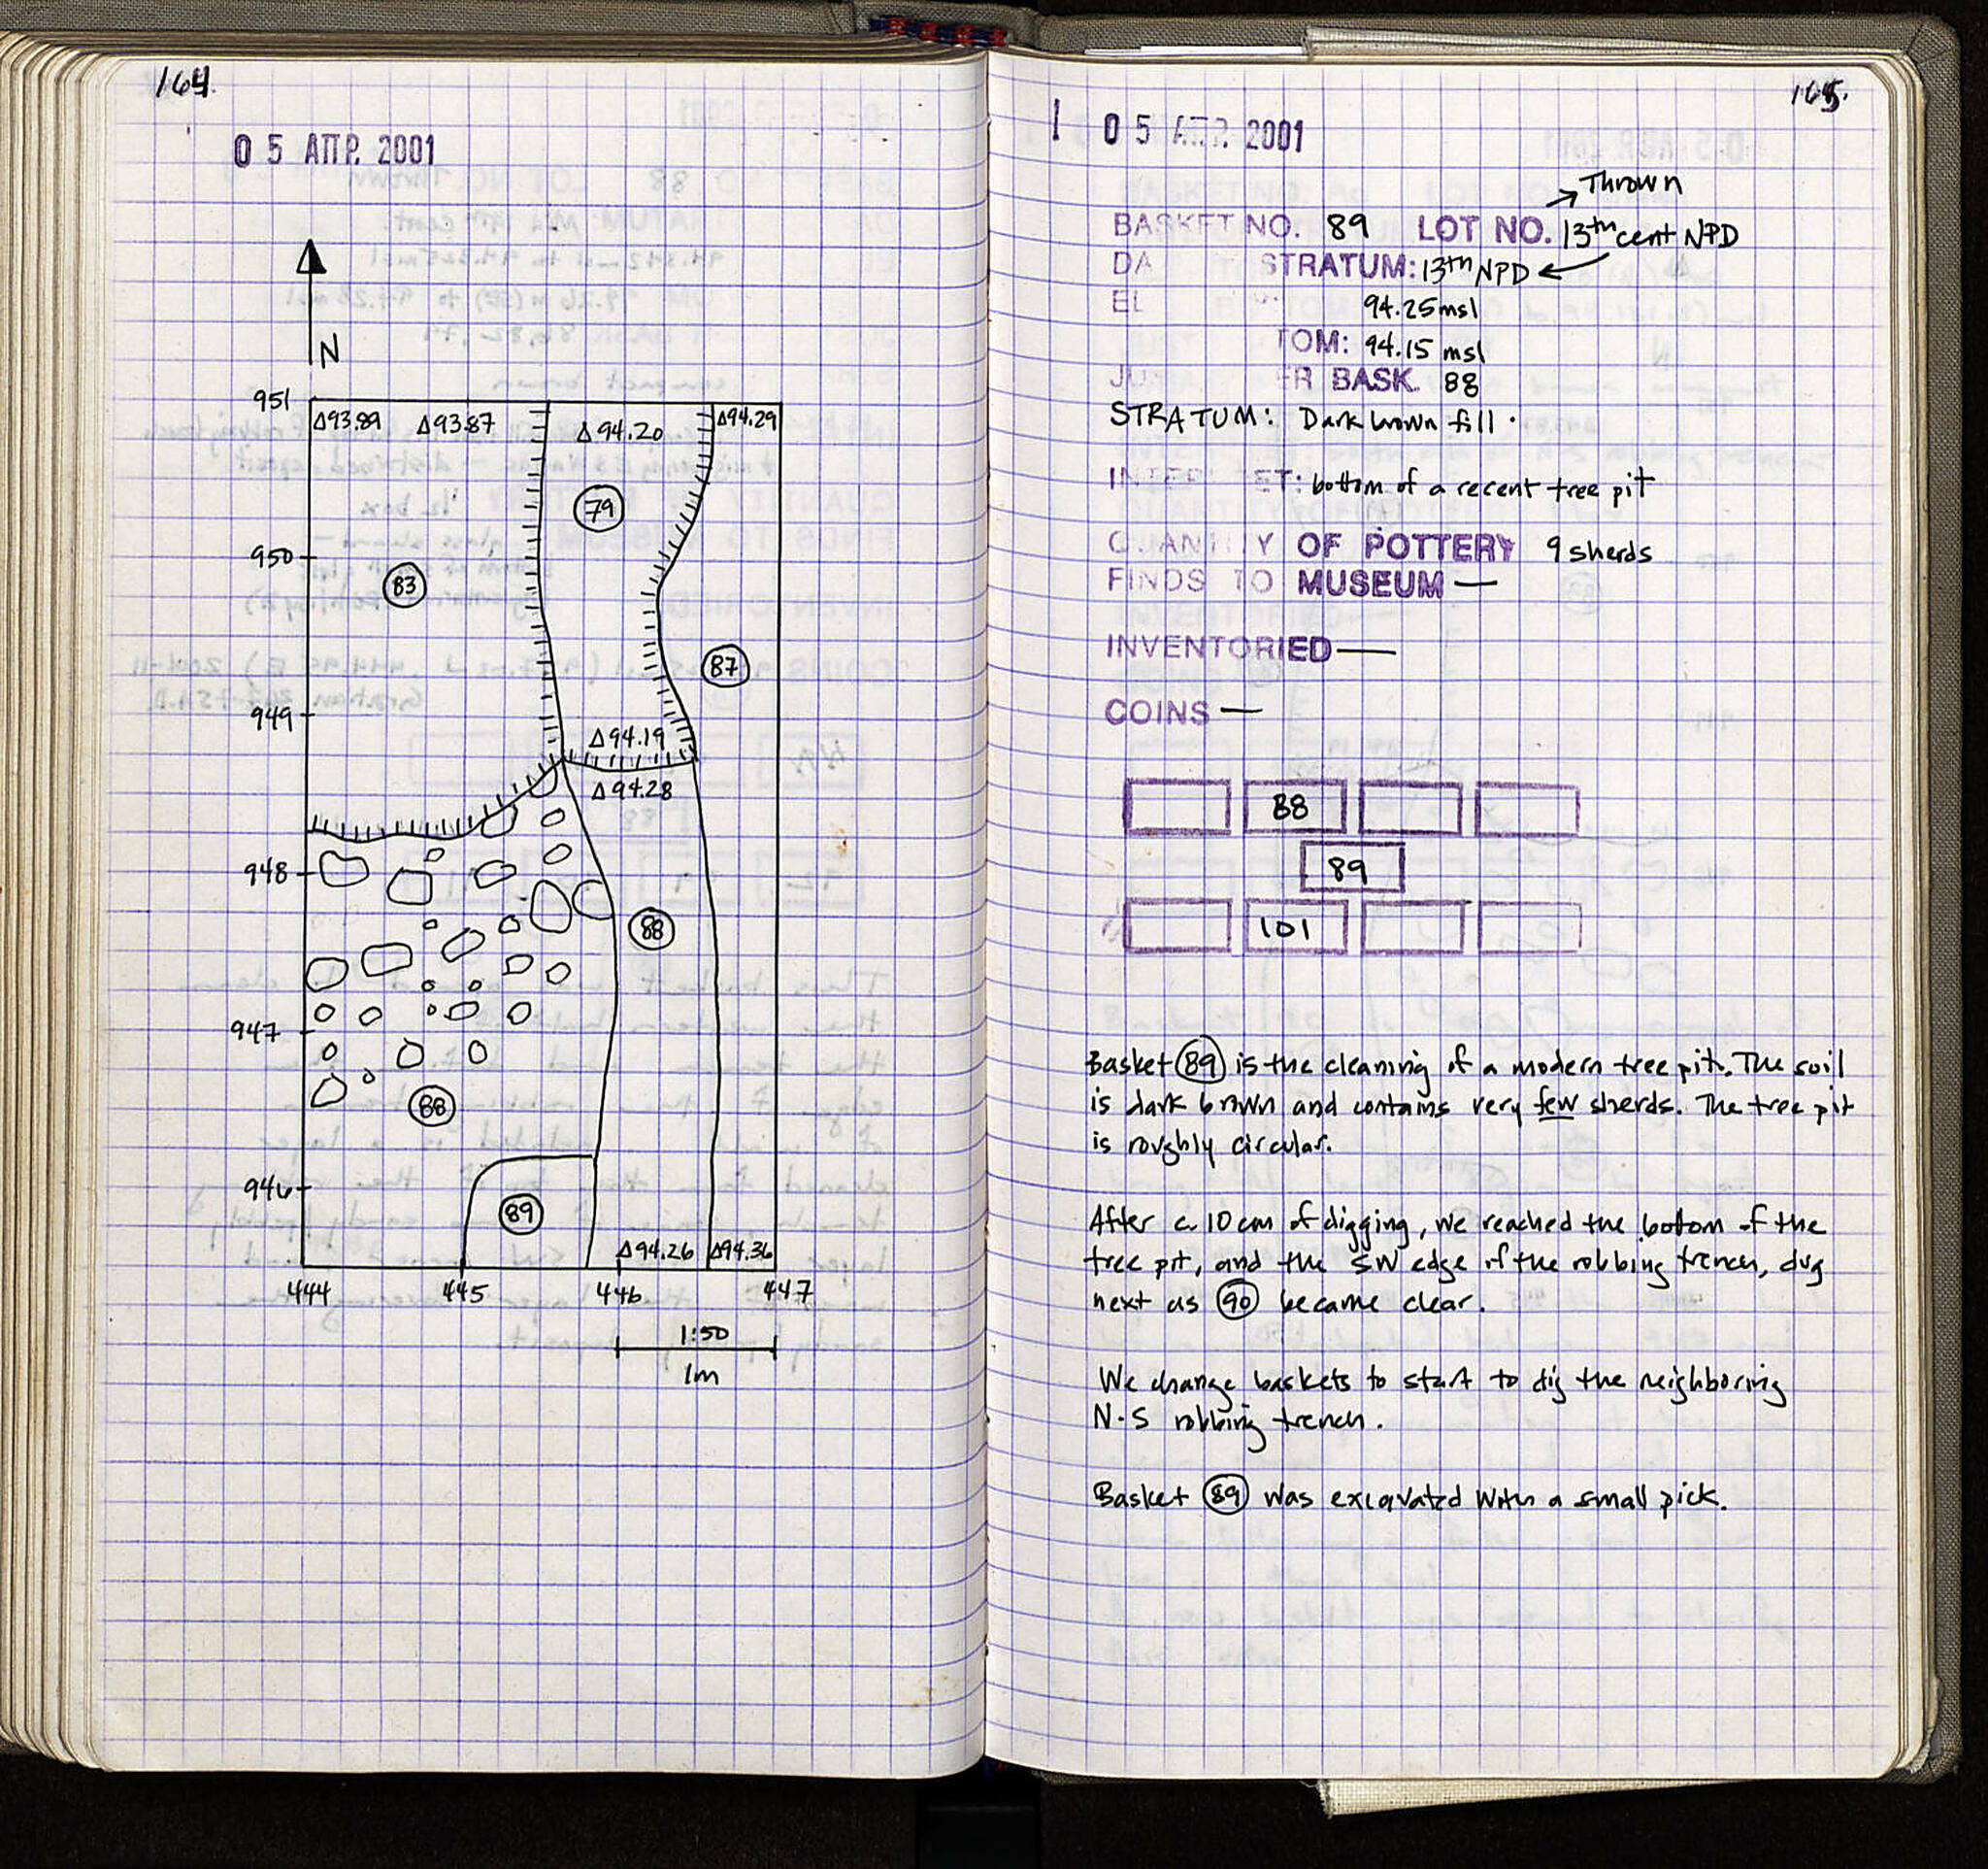 164.
05 ΑΠΡ. 2001
N
951
Δ93.89 Δ93.87 Δ94.20 Δ94.29
79
950
83
87
949
Δ94.19
Δ94.28
948
88
947
88
946
89
Δ94.26 Δ94.36
444 445 446 447
1:50
1m
165.
05 ΑΠΡ. 2001
→ Thrown
BASKET NO. 89 LOT NO. 13th cent NPD
DA STRATUM: 13th NPD ←
EL 94.25 msl
TOM: 94.15 msl
JU ER BASK. 88
STRATUM: Dark brown fill.
INTERP ET: bottom of a recent tree pit
QUANTITY OF POTTERY 9 sherds
FINDS TO MUSEUM —
INVENTORIED —
COINS —
88
89
101
Basket 89 is the cleaning of a modern tree pit. The soil
is dark brown and contains very few sherds. The tree pit
is roughly circular.
After c. 10 cm of digging, we reached the bottom of the
tree pit, and the SW edge of the robbing trench, dug
next as 90 became clear.
We change baskets to start to dig the neighboring
N-S robbing trench.
Basket 89 was excavated with a small pick.